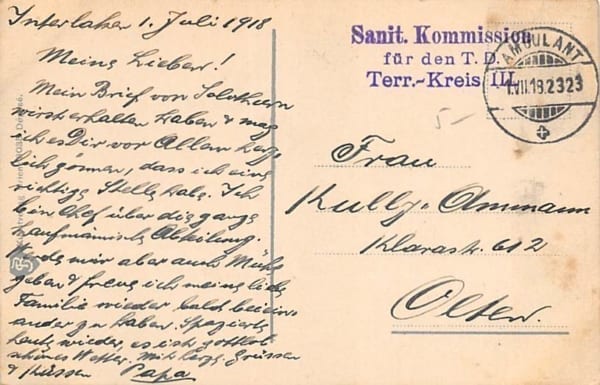 Interlaken 1. Juli 1918
Meine Lieben!
Mein Brief von Solothurn
wirst erhalten haben & mag
ich es Dir vor Allem herz-
lich gönnen, dass ich eine
richtige Stelle habe. Ich
bin Chef über die ganze
kaufmännisch Abteilung.
Werde mir aber auch Mühe
geben & freue ich meine liebe
Familie wieder bald beiein-
ander zu haben. Spazierte
heute wieder, es ist gottlob
schönes Wetter. Mit herzl. Grüssen
& Küssen Papa
Sanit. Kommission
für den T. D.
Terr.-Kreis III
AMBULANT
1.VII.18.2323
5.-
Frau
Kully-Ammann
Klarastr. 612
Olten